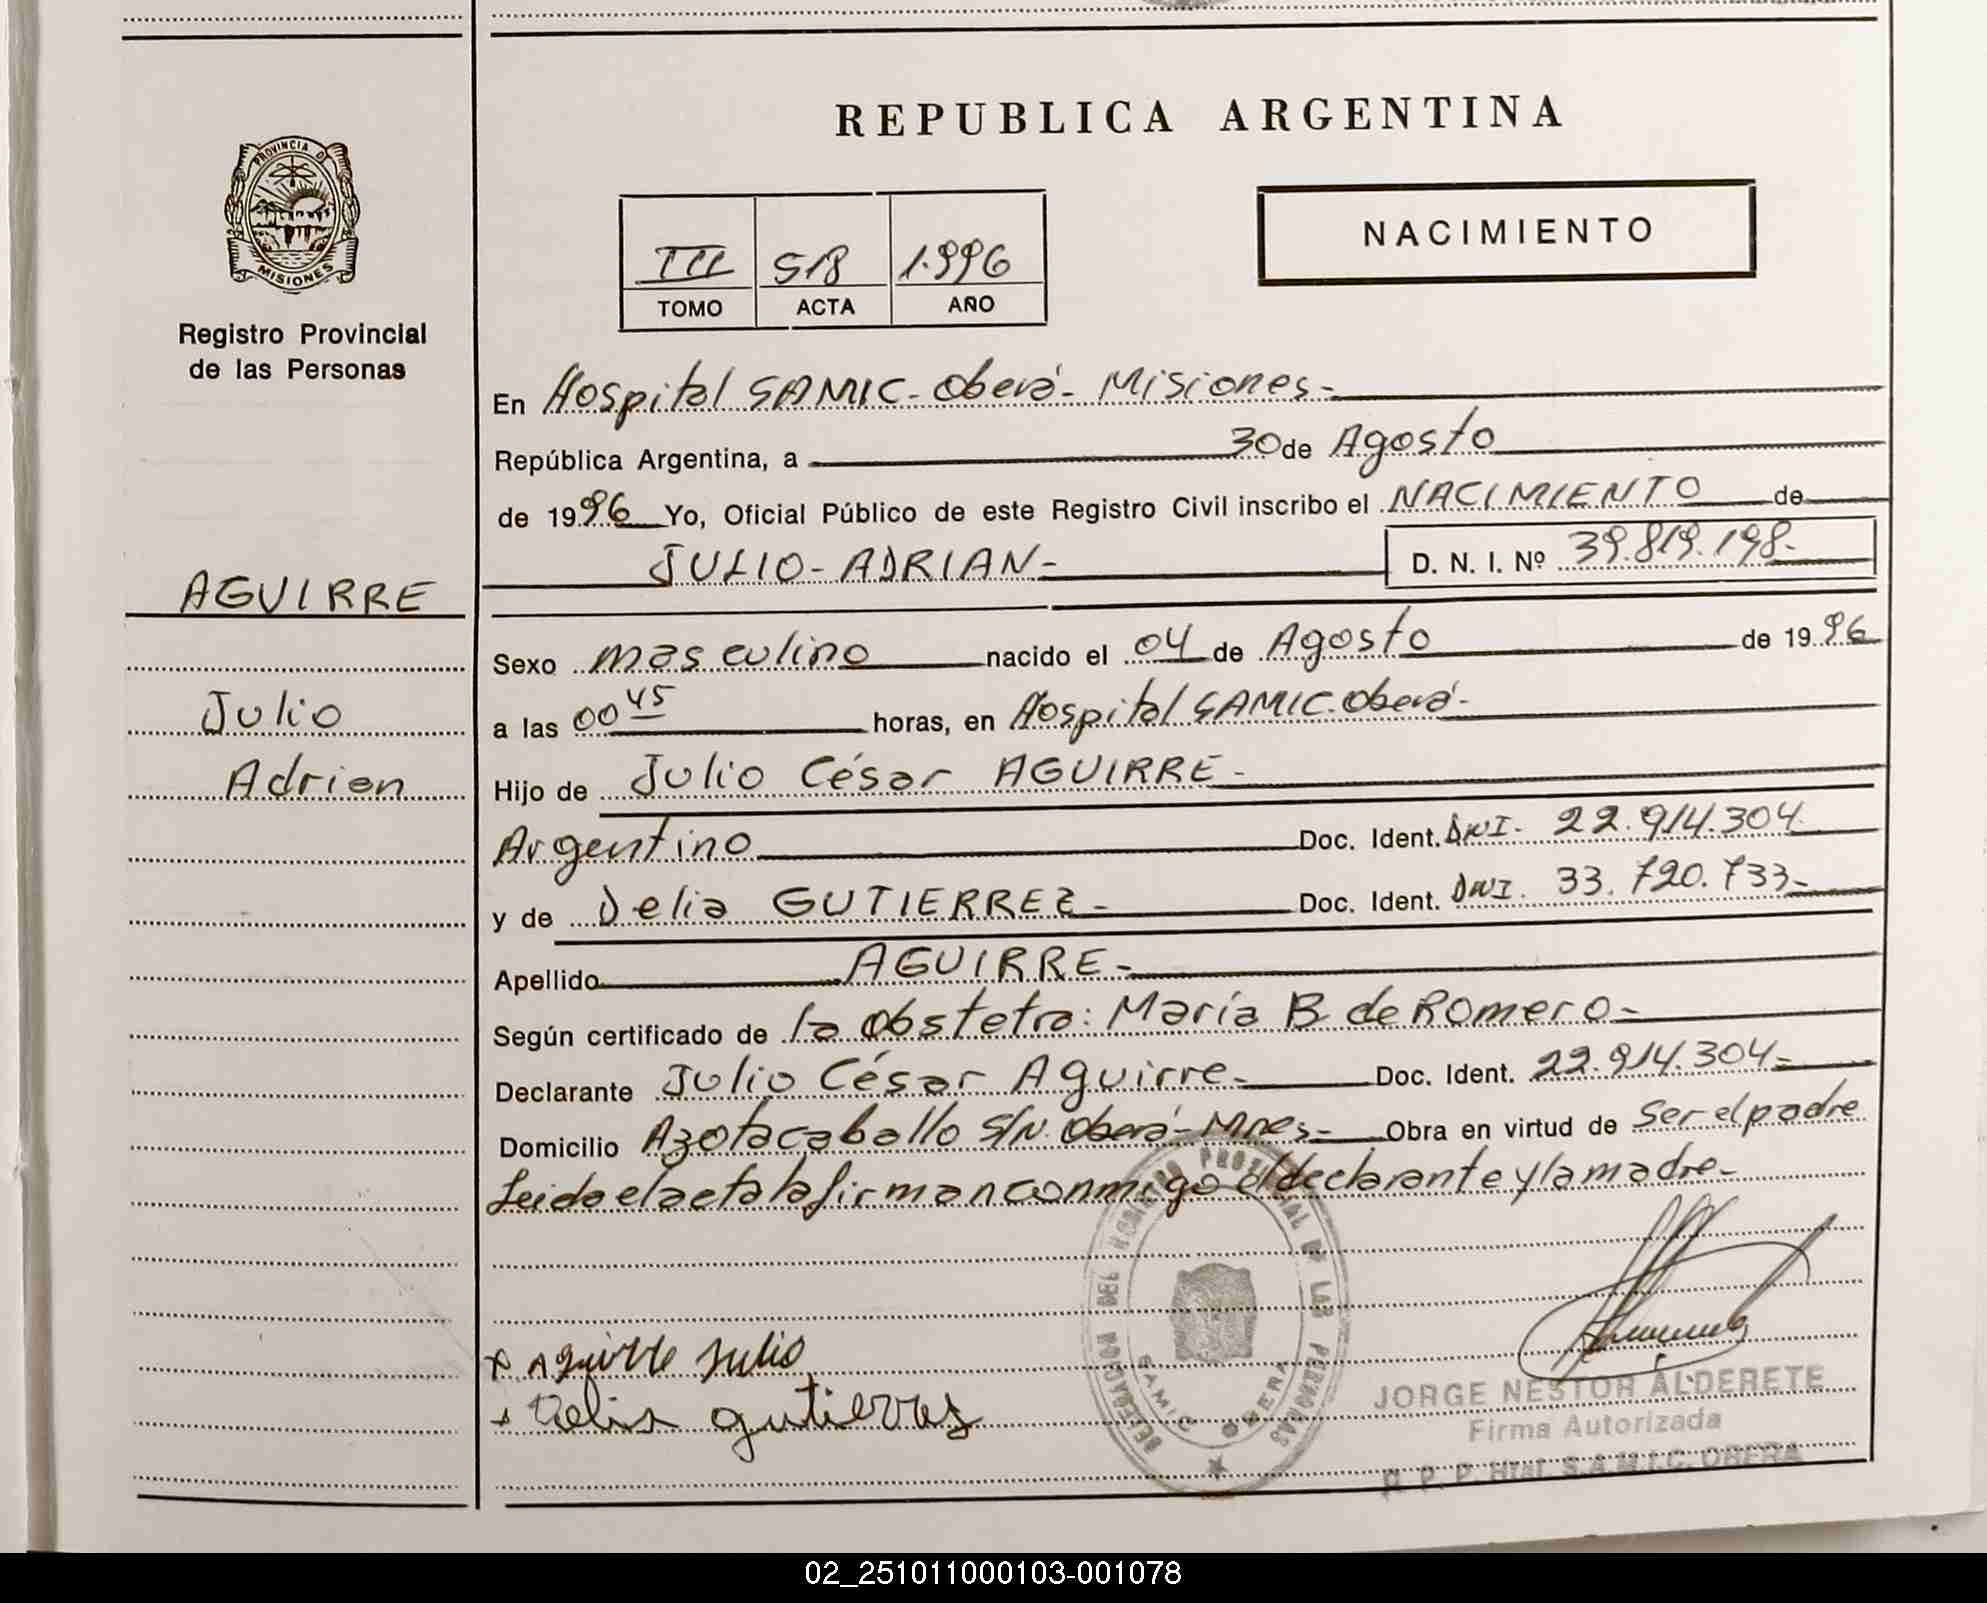 REPUBLICA ARGENTINA
PROVINCIA D
MISIONES
Registro Provincial
de las Personas
NACIMIENTO
III 518 1.996
TOMO ACTA AÑO
En Hospital SAMIC - Oberá - Misiones -
República Argentina, a 30 de Agosto
de 1996 Yo, Oficial Público de este Registro Civil inscribo el NACIMIENTO de
JULIO - ADRIAN - D. N. I. Nº 39.819.198.-
AGUIRRE
Julio
Adrian
Sexo masculino nacido el 04 de Agosto de 1996
a las 00 45 horas, en Hospital SAMIC. Oberá -
Hijo de Julio César AGUIRRE -
Argentino Doc. Ident. DNI. 22.914.304
y de Delia GUTIERREZ - Doc. Ident. DNI. 33.720.733 -
Apellido AGUIRRE -
Según certificado de la obstetra: María B de Romero -
Declarante Julio César Aguirre - Doc. Ident. 22.914.304 -
Domicilio Azotacaballo S/N. Oberá - Mnes - Obra en virtud de ser el padre
Leida el acta la firman conmigo el declarante y la madre -
DELEGACION DEL REGISTRO PROVINCIAL DE LAS PERSONAS
SAMIC OBERA
x Aguirre Julio
Delia gutierres
JORGE NESTOR ALDERETE
Firma Autorizada
R. P. P. Htal. S.A.M.I.C. OBERA
02_251011000103-001078